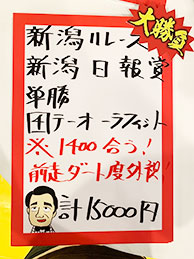 大勝負
新潟11レース
新潟日報賞
単勝
4テーオーラフィット
※1400合う!
前走ダート度外視!
計15000円